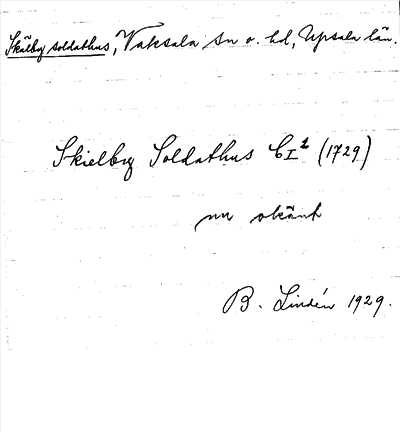 Skälby soldathus, Vaksala sn o. hd, Upsala län.
Skielby Soldathus CI² (1729)
nu okänt
B. Lindén 1929.